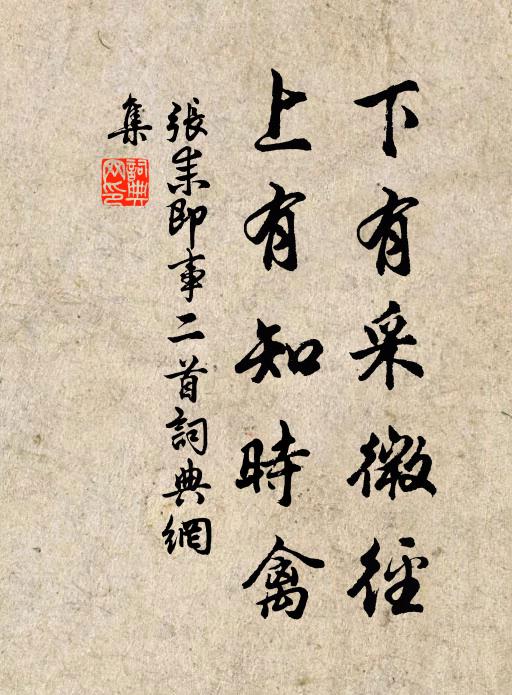 下有采微徑
上有知時禽
張耒即事二首詞典網
集
詞典
网印